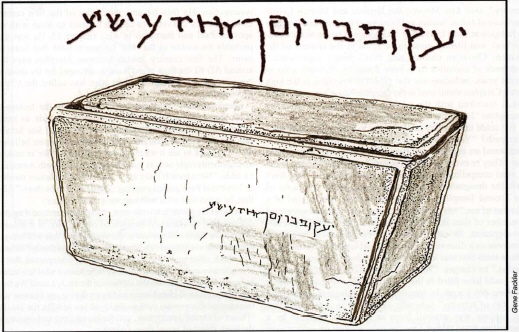 יעקוב בר יוסף אחוי דישוע
יעקוב בר יוסף אחוי דישוע
Gene Fackler